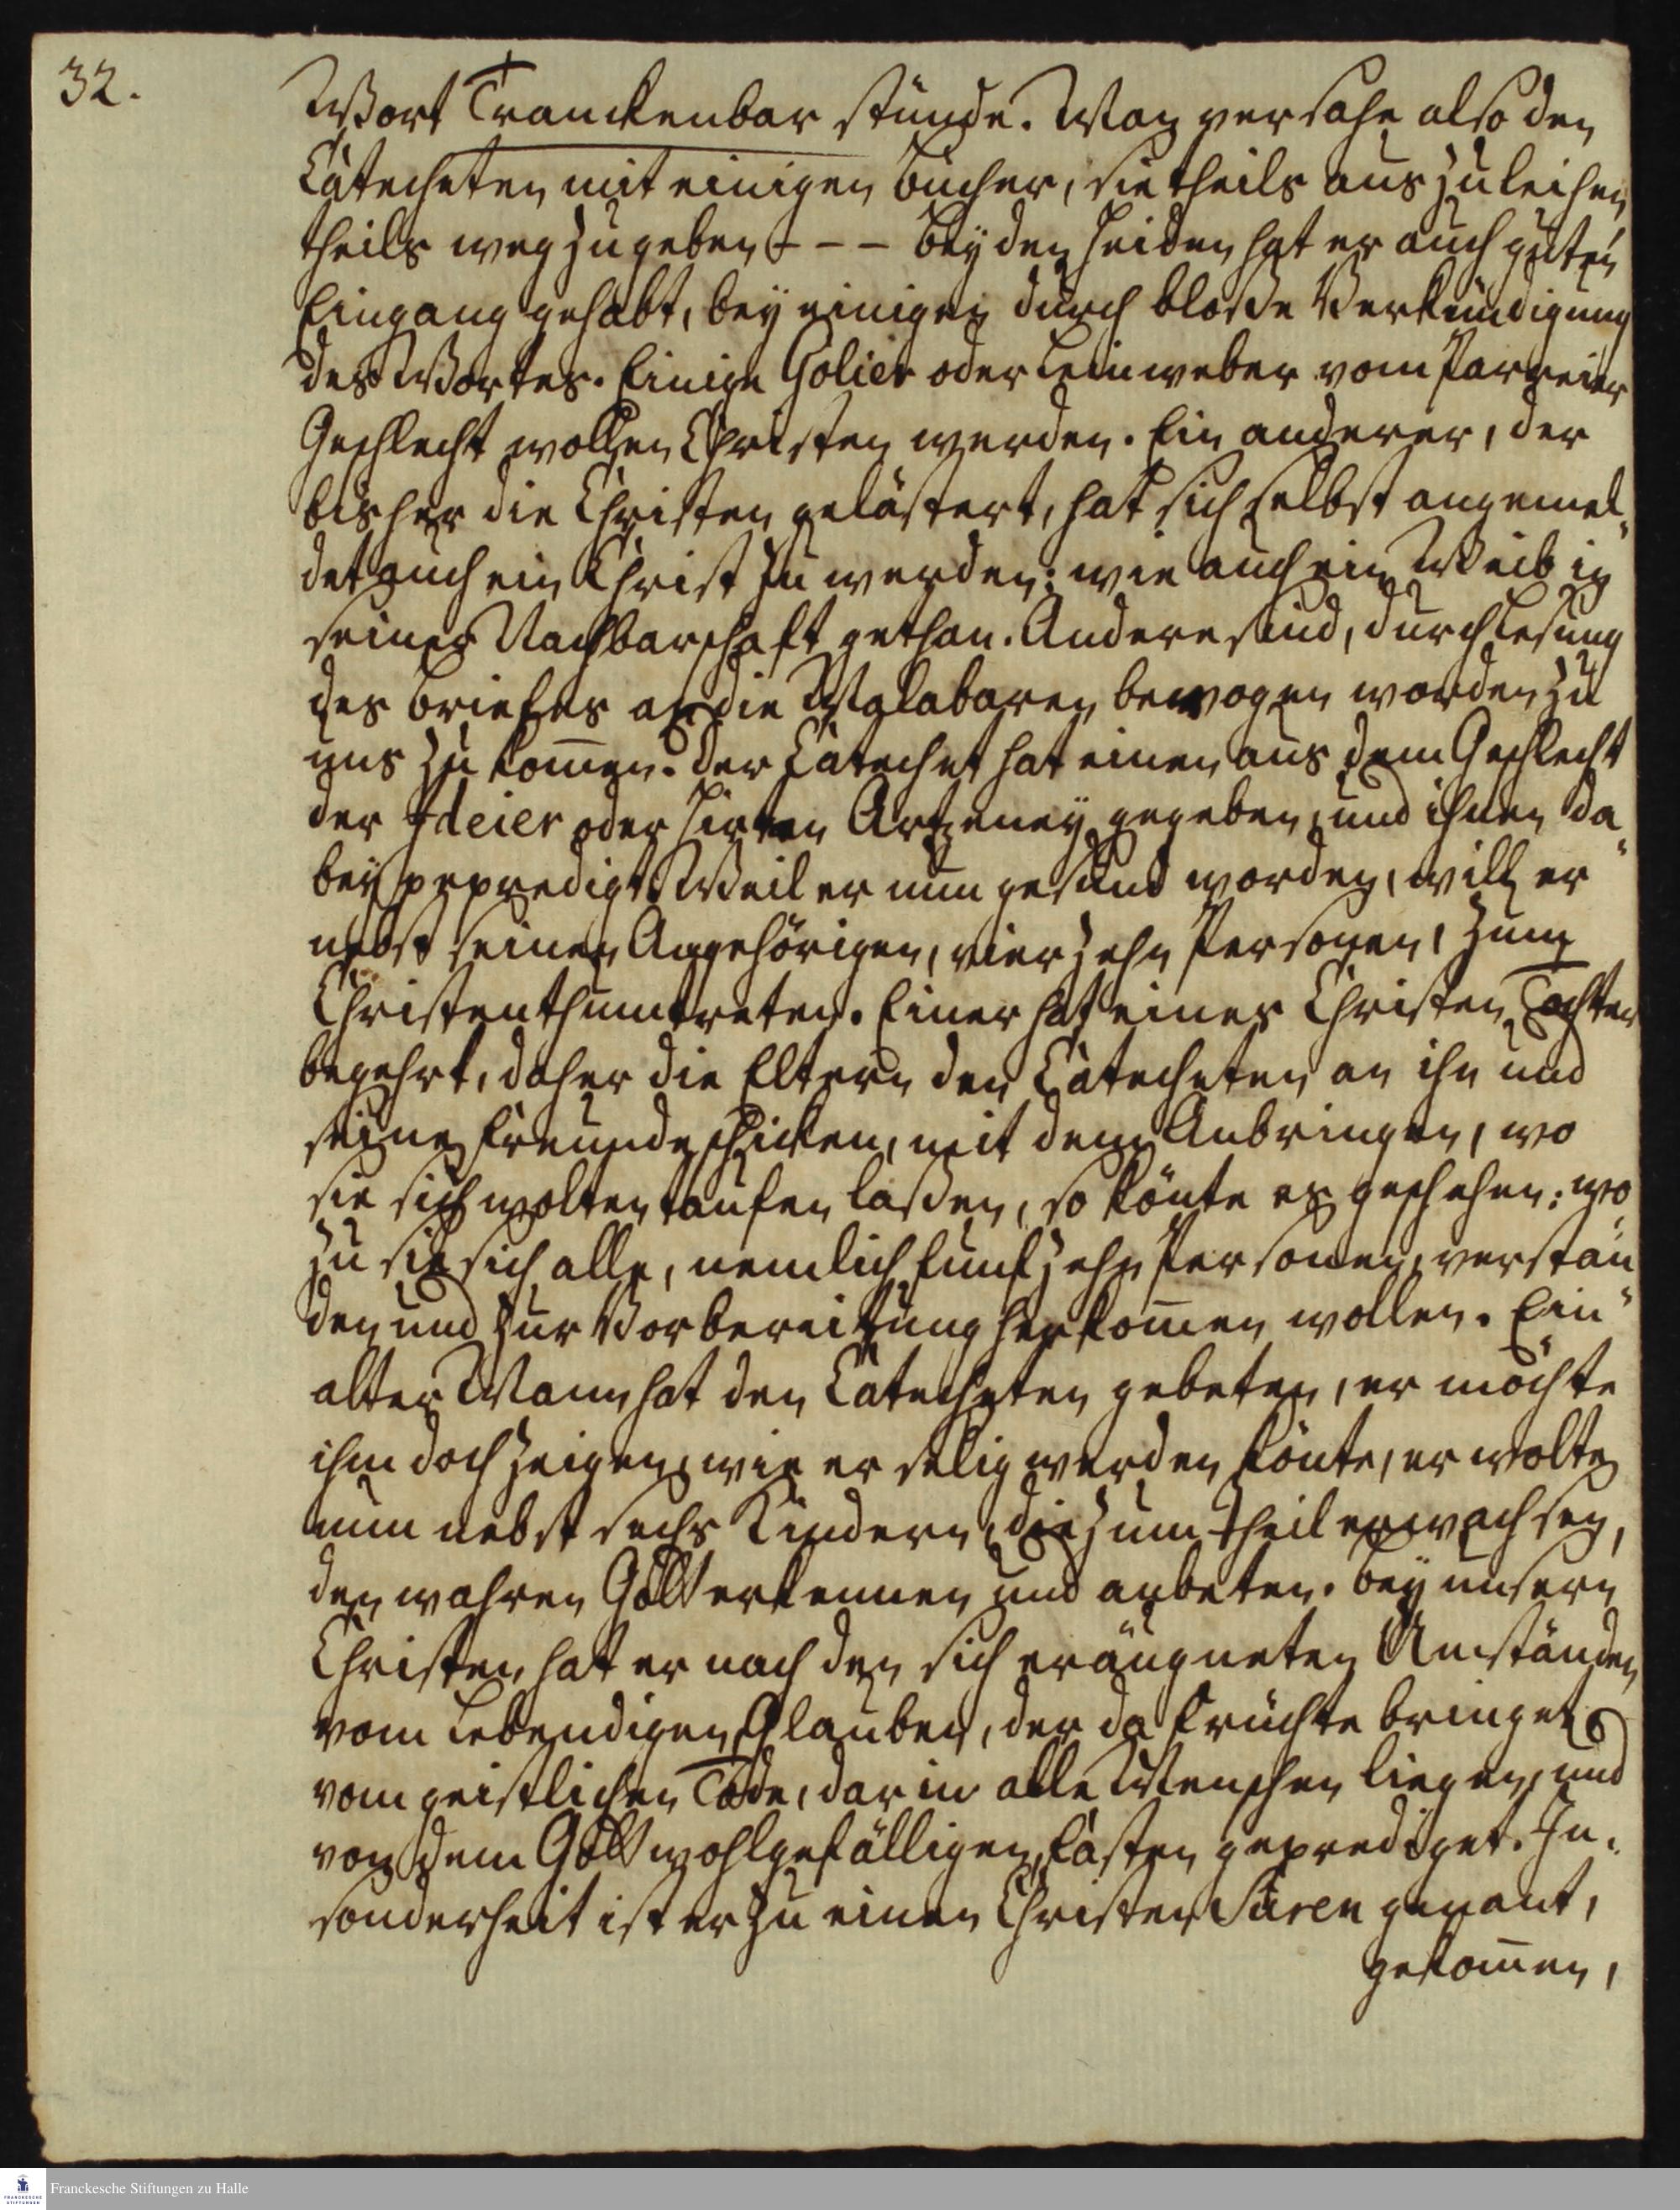 32.
Wort Tranckenbar stünde. Man versahe also den
Catecheten mit einigen Bücher, sie theils auszuleihen
theils wegzugeben - - - Bey den Heiden hat er auch guten
Eingang gehabt, bey einigen durch bloße Verkündigung
des Wortes. Einige Golier oder Leinweber vom Parreier
Geschlecht wollen Christen werden. Ein anderer, der
bisher die Christen gelästert, hat sich selbst angemel„
det auch ein Christ zu werden; wie auch ein Weib in
seiner Nachbarschaft gethan. Andere sind, durch Lesung
des Briefes an die Malabaren bewogen worden zu
uns zu kom̄en. Der Catechet hat einen aus dem Geschlecht
der Ideier oder Hirten Artzeney gegeben, und ihnen da„
bey geprediget. Weil er nun gesund worden, will er
nebst seinen Angehörigen, vierzehn Personen, zum
Christenthum treten. Einer hat eines Christen Tochter
begehrt, daher die Eltern den Catecheten an ihn und
seine Freunde schicken, mit dem Anbringen, wo
sie sich wolten taufen laßen, so könte es geschehen: wo„
zu sie sich alle, nemlich funfzehn Personen, verstan„
den und zur Vorbereitung herkom̄en wollen. Ein
alter Mann hat den Catecheten gebeten, er möchte
ihm doch zeigen, wie er selig werden könte, er wolte
nun nebst sechs Kindern, die zum theil erwachsen,
den wahren Gott erkennen und anbeten. Bey unsern
Christen hat er nach den sich eräugneten Umständen
vom lebendigen Glauben, der da Früchte bringet
vom geistlichen Tode, darin alle Menschen liegen, und
von dem Gott wohlgefälligen Fasten geprediget. In„
sonderheit ist er zu einen Christen Suren genant,
gekom̄en,
Franckesche Stiftungen zu Halle